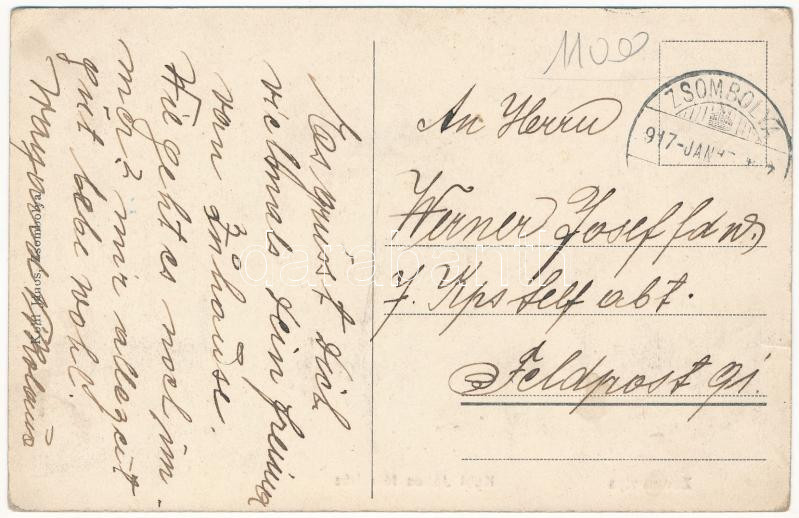 1100
ZSOMBOLYA
917-JAN
An Herrn
Werner Josef fdw.
7. Kps telf abt.
Feldpost 91.
Es grüsst dich
vielmals dein freund
von zuhause.
Wie geht es noch im-
mer? mir allezeit
gut lebe wohl
Nikolaus
Kohl János, Zsombolya
darabanth